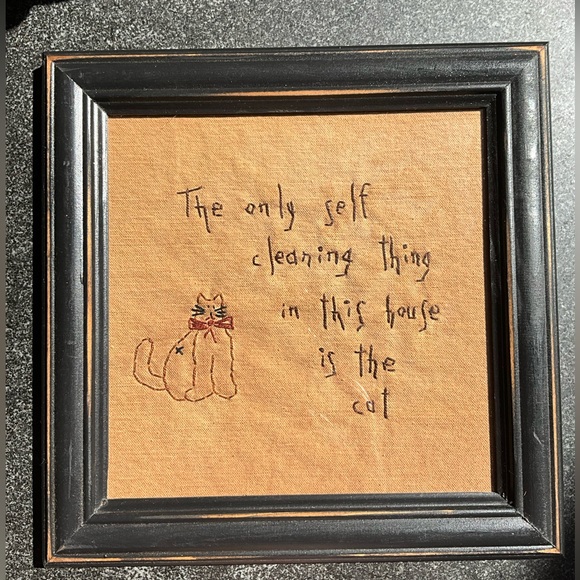 The only self
cleaning thing
in this house
is the
cat